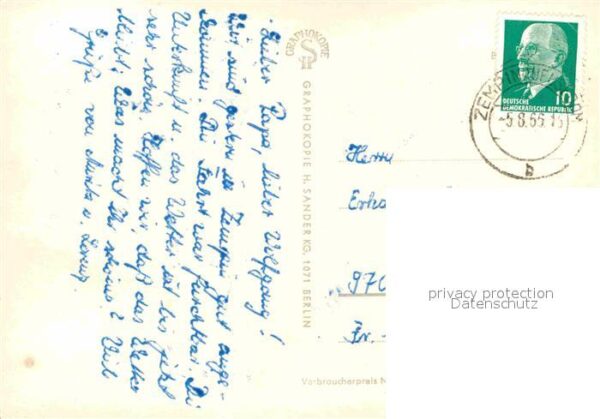 Lieber Papa, lieber Wolfgang!
Wir sind gestern in Zempin gut ange-
kommen. Die Fahrt war furchtbar. Die
Unterkunft u. das Wetter ist bis jetzt
sehr schön. Hoffen wir, daß das Wetter
bleibt. Was macht Ihr schönes? Viele
Grüße von u.
GRAPHOKOPIE
GRAPHOKOPIE H. SANDER KG, 1071 BERLIN
Verbraucherpreis
10
DEUTSCHE
DEMOKRATISCHE REPUBLIK
ZEMPIN
-5.8.65
b
Herrn
970
Fr.-
privacy protection
Datenschutz